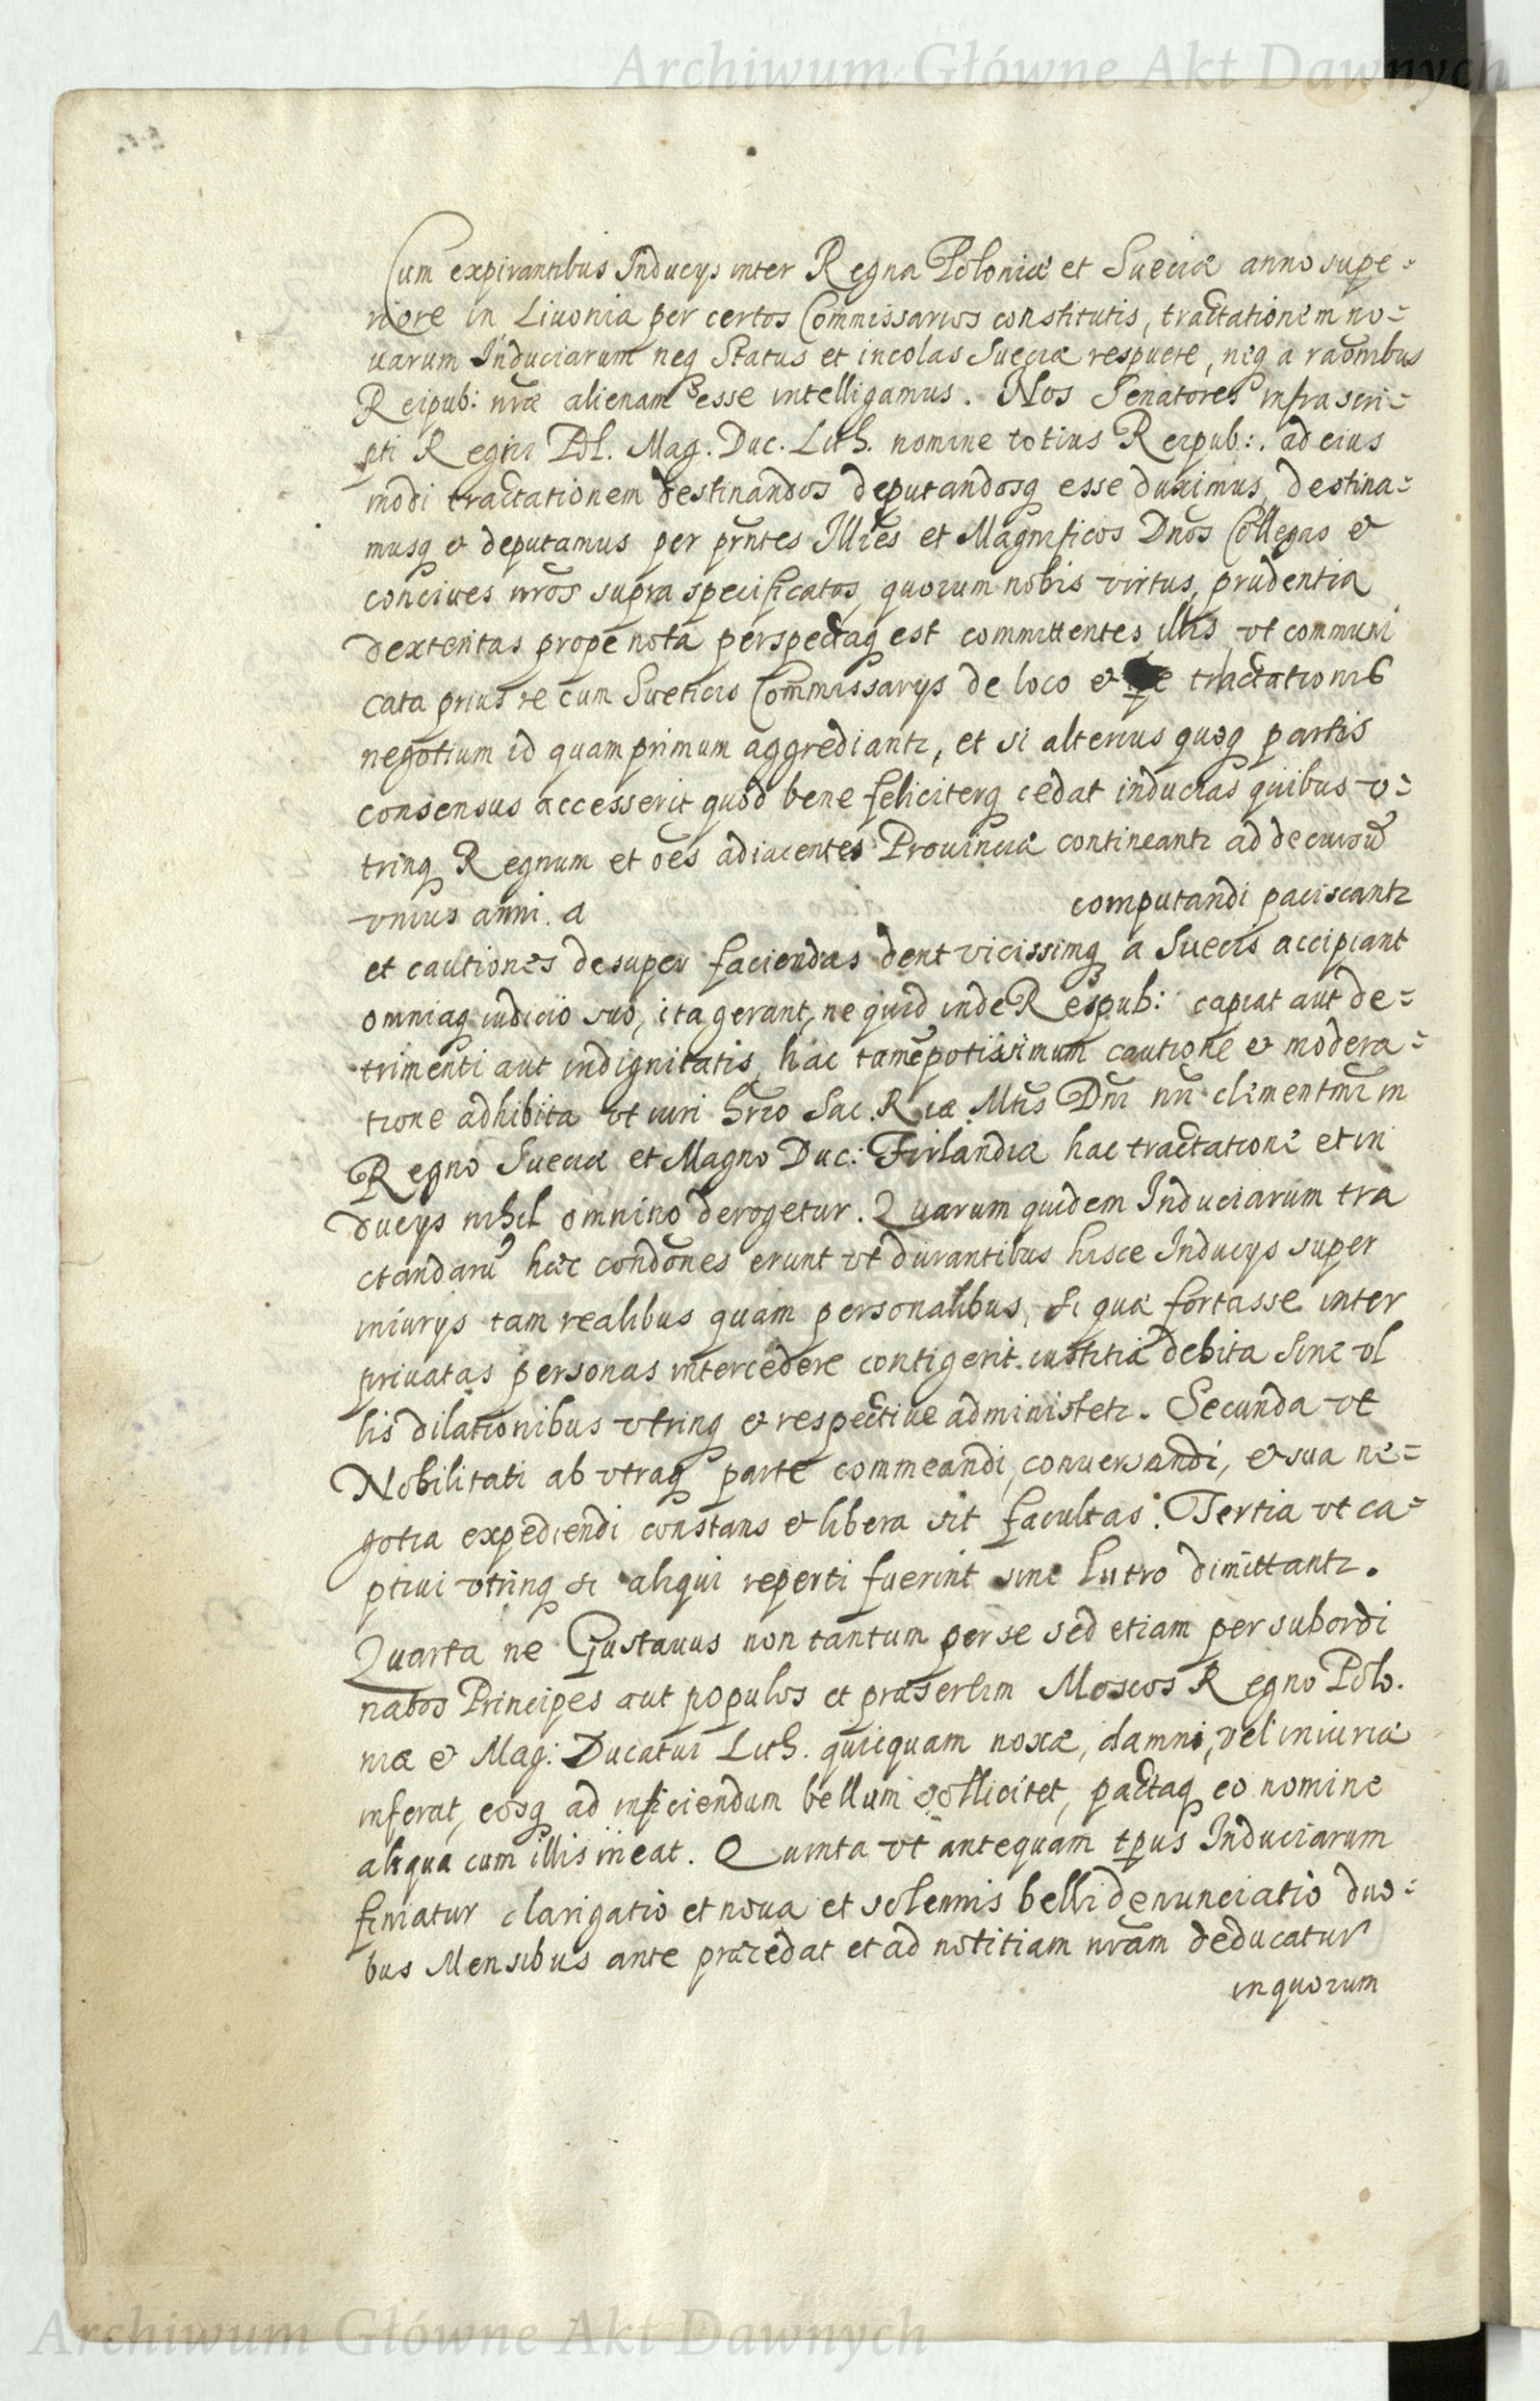 Archiwum Główne Akt Dawnych
Cum expirantibus Inducys inter Regna Poloniæ et Sueciæ anno supe=
riore in Liuonia per certos Commissarios constitutis, tractationem no=
uarum Induciarum neq Status et incolas Sueciæ respuere, neq a raōnibus
Reipub: nr̄æ alienam esse intelligamus. Nos Senatores infra scri=
pti Regni Pol. Mag. Duc. Lith. nomine totius Reipub:. ad eius
modi tractationem destinandos deputandosq esse duximus, destina=
musq & deputamus per pr̄ntes Ill̄res et Magnificos Dn̄os Collegas &
conciues nr̄os supra specificatos, quorum nobis virtus, prudentia
dexteritas prope nota perspectaq est committentes illis, vt communi
cata prius re cum Sueticis Com̄missarys de loco & tractationis
negotium id quamprimum aggrediantr, et si alterius quoq partis
consensus accesserit quod bene feliciterq cedat inducias quibus v=
trinq Regnum et oēs adiacentes Prouinciæ contineantr ad decursū
vnius anni. a computandi paciscantr
et cautiones desuper faciendas dent vicissimq a Suecis accipiant
omniaq iudicio suo, ita gerant, ne quid inde Respub: capiat aut de=
trimenti aut indignitatis, hac tamē potissimum cautione & modera=
tione adhibita vt iuri hr̄io Sac. R iæ. Mt̄is Dn̄i nr̄i clementmi in
Regno Sueciæ et Magno Duc: Finlandiæ hac tractatione et in
ducys nihil omnino derogetur. Quarum quidem Induciarum tra
ctandarū hæc condōnes erunt vt durantibus hisce Inducys super
iniurys tam realibus quam personalibus, si quæ fortasse inter
priuatas personas intercedere contigerit. iustitia debita sine vl
lis dilationibus vtrinq & respectiue administetr. Secunda vt
Nobilitati ab vtraq parte commeandi, conuersandi, & sua ne=
gotia expediendi constans & libera sit facultas. Tertia vt ca=
ptiui vtrinq si aliqui reperti fuerint sine lutro dimittantr.
Quarta ne Gustauus non tantum per se sed etiam per subordi
natos Principes aut populos et præsertim Moscos Regno Polo.
niæ & Mag: Ducatui Lith. quicquam noxæ, damni, vel iniuriæ
inferat, eosq ad inficiendum bellum sollicitet, pactaq eo nomine
aliqua cum illis ineat. Quinta vt antequam tp̄us Induciarum
finiatur clarigatio et noua et solennis belli denunciatio duo=
bus Mensibus ante præcedat et ad notitiam nr̄am deducatur
inquorum
Archiwum Główne Akt Dawnych